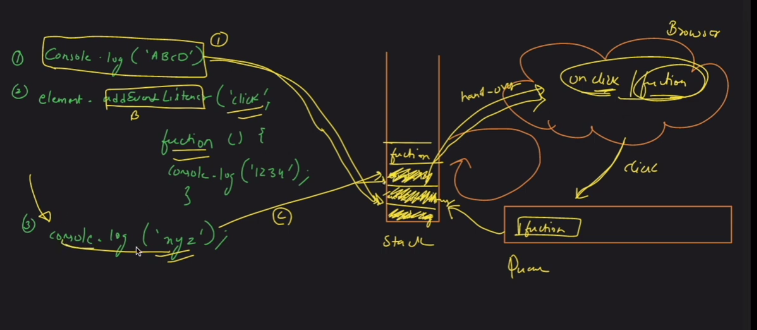 ① Console.log('ABCD') ①
② element.addEventListener('click',
B
fuction () {
console.log('1234');
}
③ console.log('xyz');
C
fuction
Stack
hand-over
Browser
onclick / fuction
click
fuction
Queue